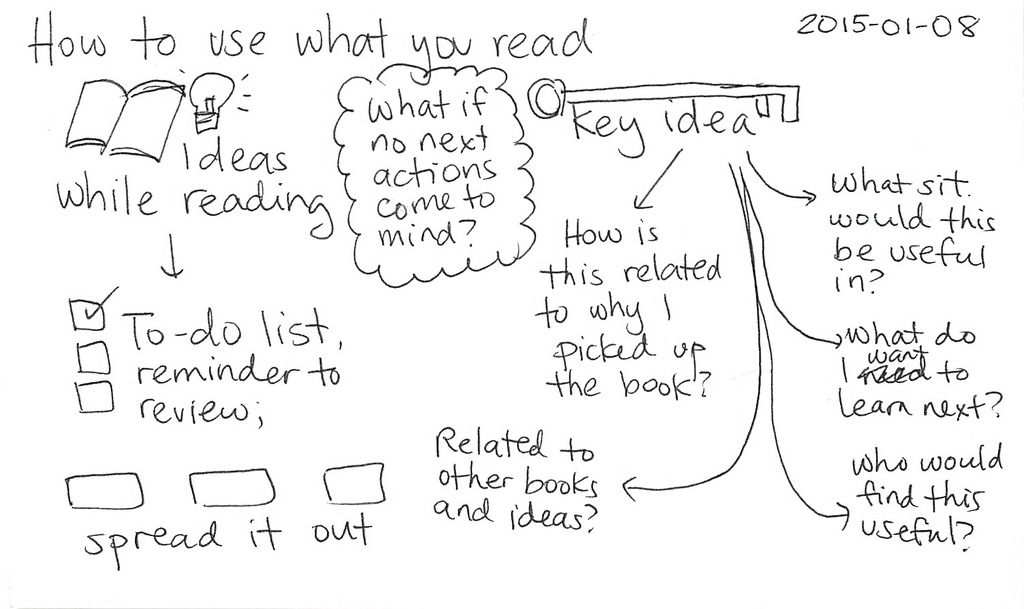 How to use what you read
2015-01-08
Ideas
while reading
To-do list,
reminder to
review;
spread it out
What if
no next
actions
come to
mind?
Key idea
How is
this related
to why I
picked up
the book?
Related to
other books
and ideas?
What sit.
would this
be useful
in?
What do
want
I need to
learn next?
who would
find this
useful?